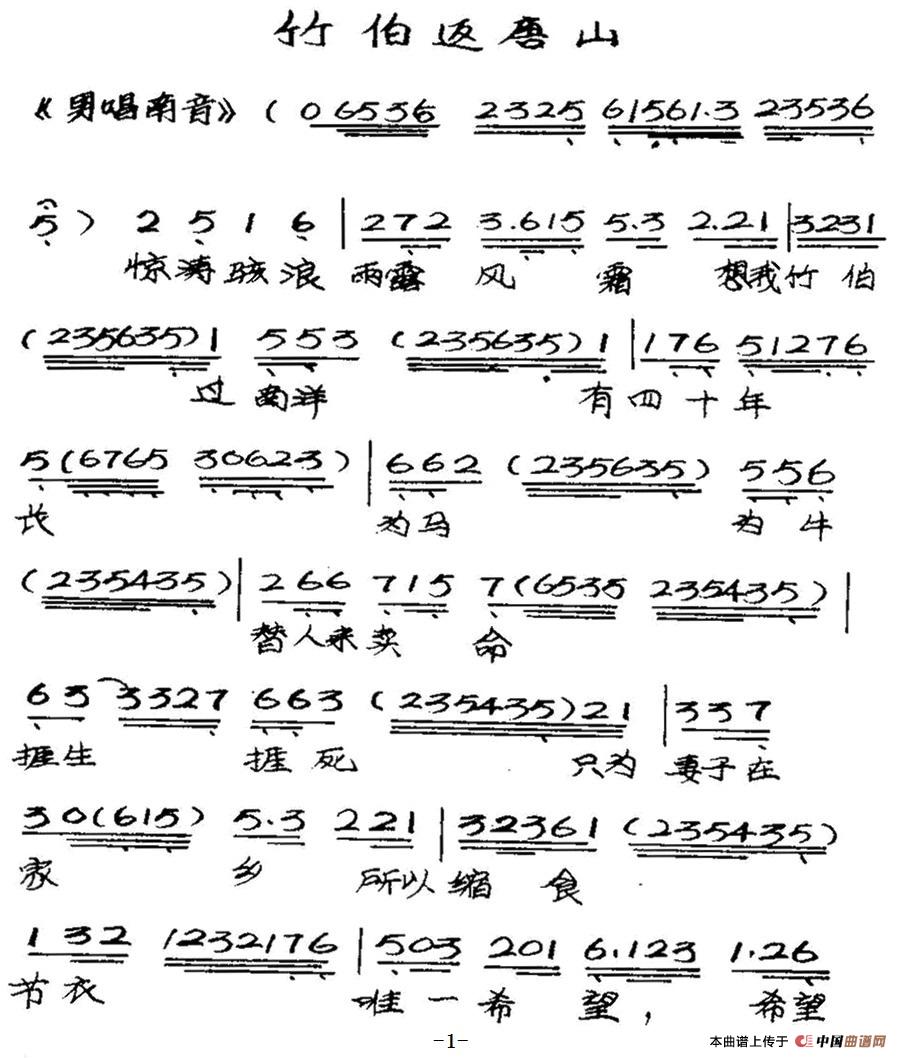 竹伯返唐山
《男唱南音》(0 6 5 3 5 6 2 3 2 5 6 1 5 6 1.3 2 3 5 3 6
5) 2 5 1 6 | 2 7 2 3.6 1 5 5.3 2.2 1 | 3 2 3 1
惊涛骇浪 雨露 风 霜 想我竹伯
(2 3 5 6 3 5) 1 5 5 3 (2 3 5 6 3 5) 1 | 1 7 6 5 1 2 7 6
过 南洋 有四十年
5 (6 7 6 5 3 0 6 2 3) | 6 6 2 (2 3 5 6 3 5) 5 5 6
长 为马 为牛
(2 3 5 4 3 5) | 2 6 6 7 1 5 7 (6 5 3 5 2 3 5 4 3 5) |
替人来卖 命
6 3 3 3 2 7 6 6 3 (2 3 5 4 3 5) 2 1 | 3 3 7
捱生 捱死 只为 妻子在
3 0 (6 1 5) 5.3 2 2 1 | 3 2 3 6 1 (2 3 5 4 3 5)
家 乡 所以缩 食
1 3 2 1 2 3 2 1 7 6 | 5 0 3 2 0 1 6.1 2 3 1.2 6
节衣 唯一希 望, 希望
-1-
本曲谱上传于 中国曲谱网